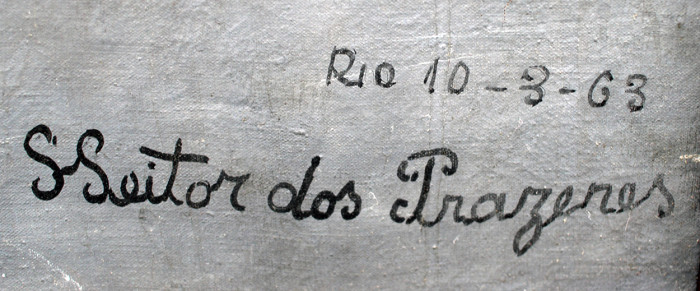 Rio 10-3-63
Heitor dos Prazeres